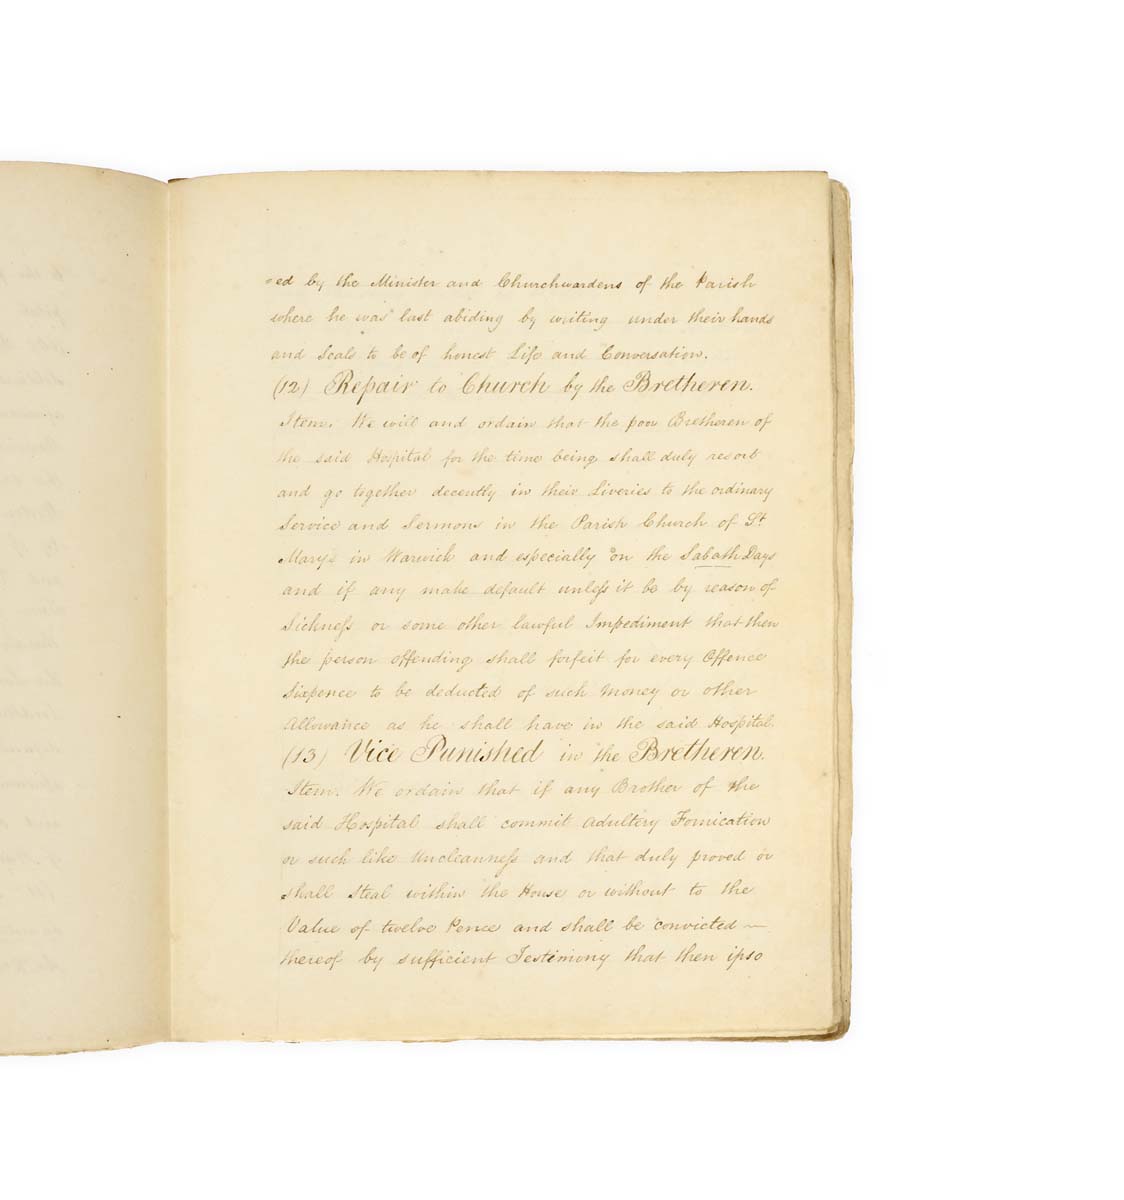 =ed by the Minister and Churchwardens of the Parish
where he was last abiding by writing under their hands
and Seals to be of honest Life and Conversation.
(12) Repair to Church by the Bretheren.
Item. We will and ordain that the poor Bretheren of
the said Hospital for the time being shall duly resort
and go together decently in their Liveries to the ordinary
Service and Sermons in the Parish Church of St
Mary's in Warwick and especially on the Sabath Days
and if any make default unless it be by reason of
Sickness or some other lawful Impediment that then
the person offending shall forfeit for every Offence
Sixpence to be deducted of such Money or other
Allowance as he shall have in the said Hospital.
(13) Vice Punished in the Bretheren.
Item. We ordain that if any Brother of the
said Hospital shall commit Adultery Fornication
or such like Uncleanness and that duly proved or
shall Steal within the House or without to the
Value of twelve Pence and shall be convicted —
thereof by sufficient Testimony that then ipso